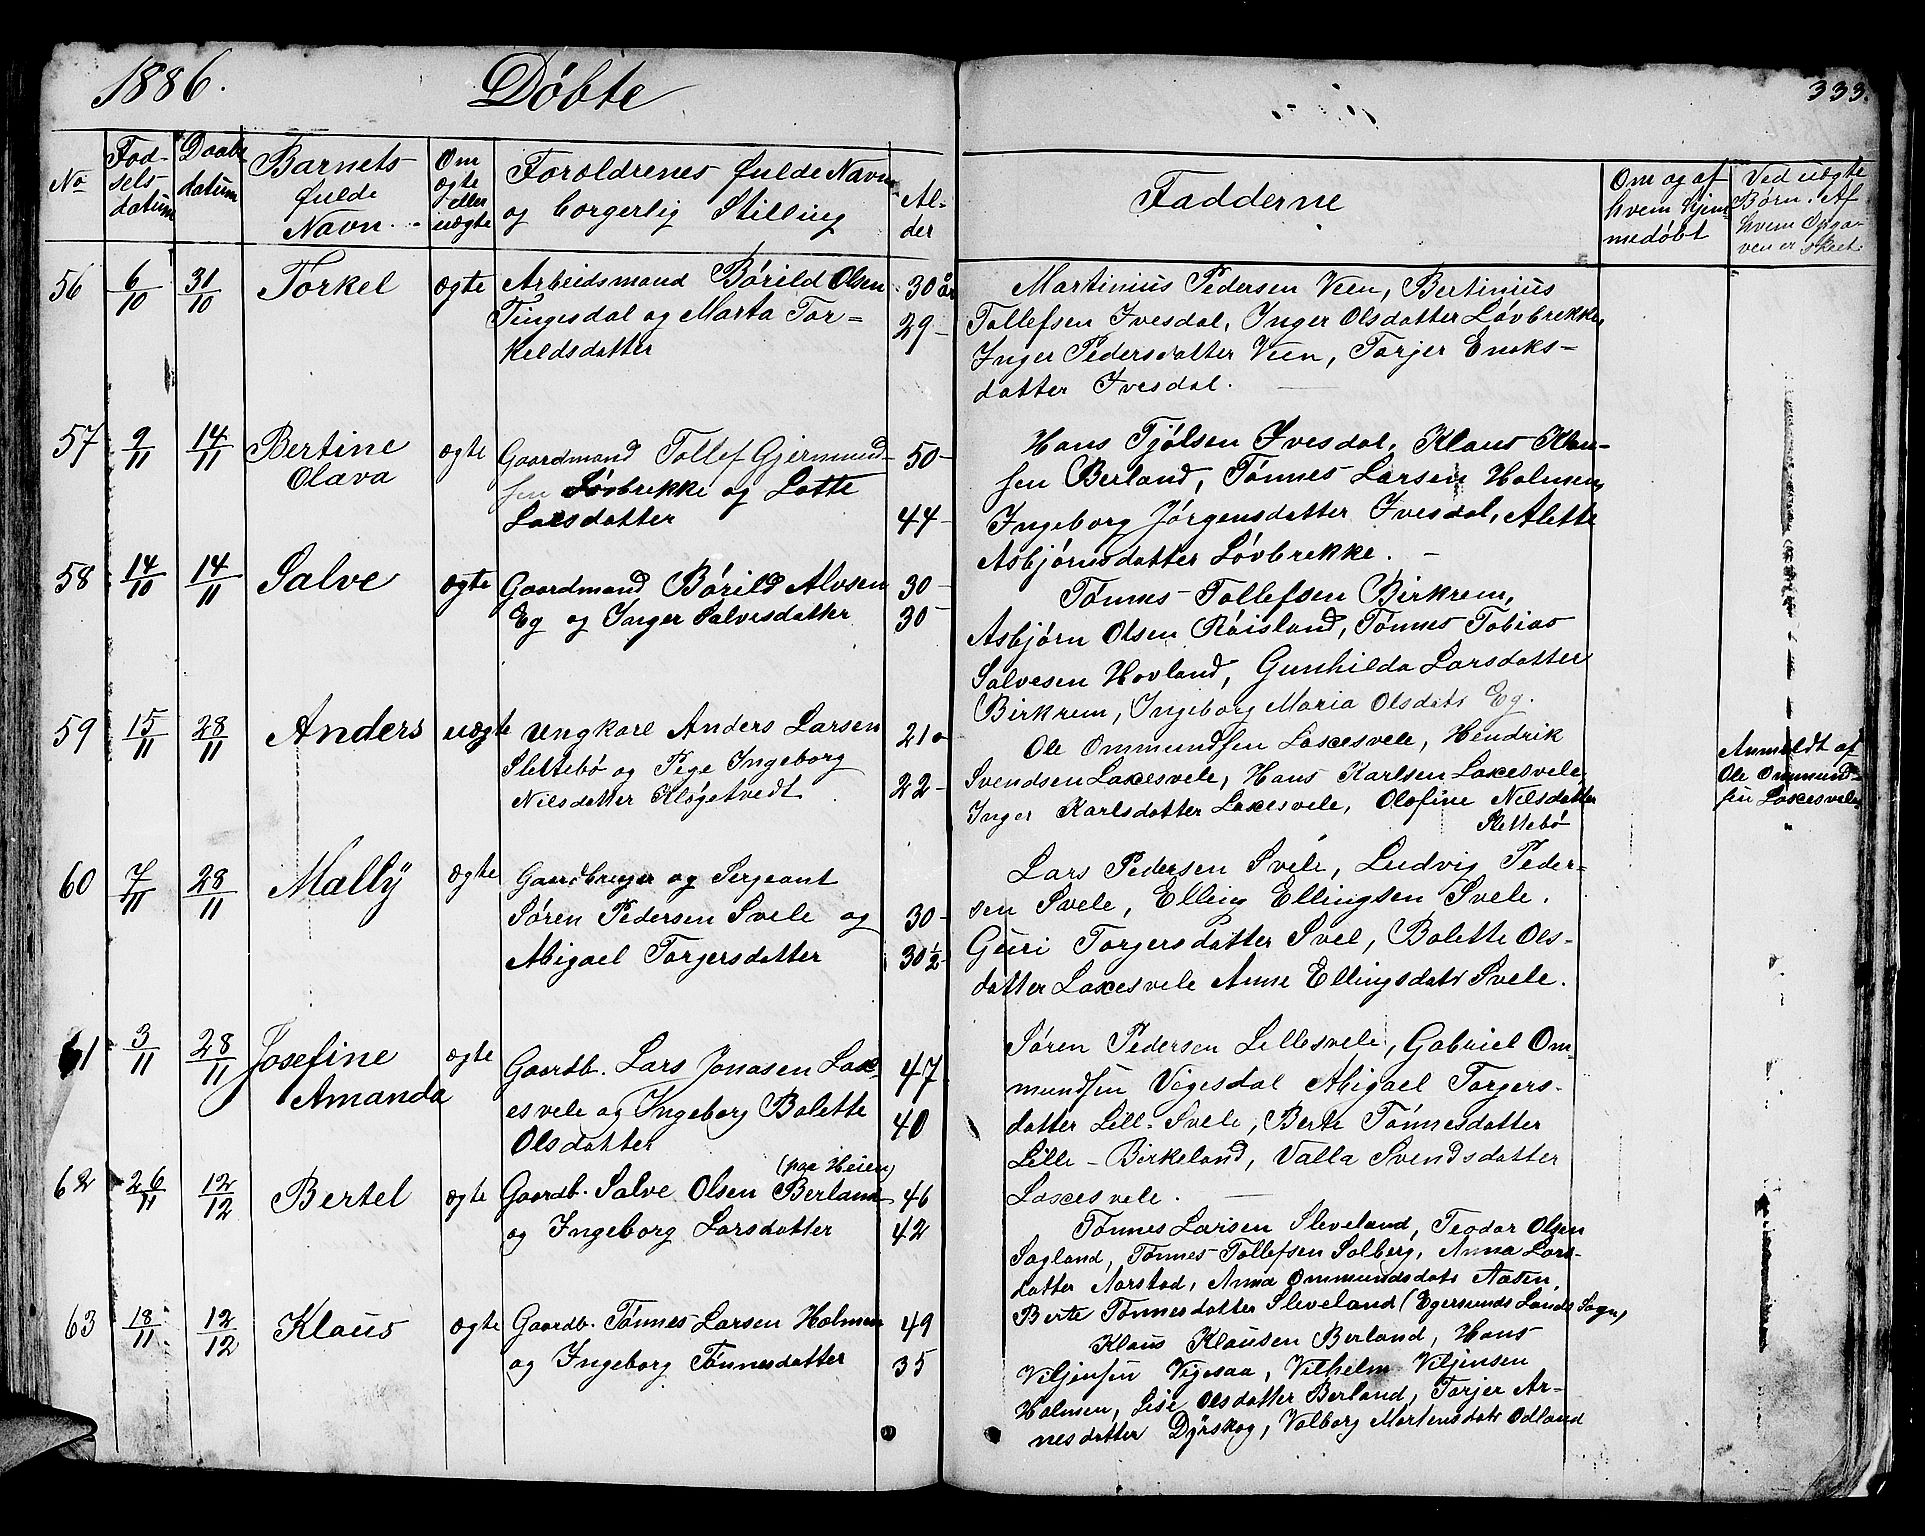 1886.
Döbte
333.
No
Fød-
sels
datum
Daabs
datum
Barnets
fulde
Navn
Om
ægte
eller
uægte
Forældrenes fulde Navn
og borgerlig Stilling
Al-
der
Fadderne
Om og af
hvem hjem
medøbt
Ved uægte
Børn. Af
hvem Opga-
ven er skeet.
56 6/10 31/10 Torkel ægte Arbeidsmand Börild Olsen 30 år
Tingesdal og Marta Tor= 29-
keldsdatter
Martinius Pedersen Veen, Bertinius
Tollefsen Ivesdal, Inger Olsdatter Løvbrekke,
Inger Pedersdatter Veen, Torjer Enoks-
datter Ivesdal.
57 9/11 14/11 Bertine ægte Gaardmand Tollef Gjermund- 50-
Olava sen Løvbrekke og Lotte
Larsdatter 44-
Hans Tjölsen Ivesdal, Klaus Klau-
sen Berland, Tønnes Larsen Holmen,
Ingeborg Jörgensdatter Ivesdal, Alette
Asbjörnsdatter Lövbrekke. -
58 14/10 14/11 Salve ægte Gaardmand Börild Alvsen 30-
Eg og Inger Salvesdatter 30-
Tönnes Tollefsen Birkrem,
Asbjörn Olsen Röisland, Tönnes Tobias
Salvesen Hovland, Gunhilda Larsdatter
Birkrem, Ingeborg Maria Olsdatr Eg.
59 15/11 28/11 Anders uægte Ungkarl Anders Larsen 21-
Slettebö og Pige Ingeborg
Nilsdatter Klögetvedt 22-
Ole Ommundsen Laxesvele, Hendrik
Svendsen Laxesvele, Hans Karlsen Laxesvele,
Inger Karlsdatter Laxesvele, Olofine Nilsdatter
Slettebö
Anmeldt af
Ole Ommund-
sen Laxesvele
60 7/11 28/11 Mally ægte Gaardbruger og Sergeant
Sören Pedersen Svele og 30-
Abigael Torgersdatter 30 1/2-
Lars Pedersen Svele, Ludvig Peder-
sen Svele, Elling Ellingsen Svele.
Guri Torgersdatter Svel, Bolette Ols-
datter Laxesvele Anne Ellingsdatr Svele.
61 3/11 28/11 Josefine ægte Gaardb. Lars Jonasen Lax- 47
Amanda esvele og Ingeborg Bolette 40
Olsdatter
Sören Pedersen Lillesvele, Gabriel Om-
mundsen Vigesdal Abigael Torgers-
datter Lill-Svele, Berte Tönnesdatter
Lille-Birkeland, Valla Svendsdatter
Laxesvele.
62 26/11 12/12 Bertel ægte Gaardb. Salve Olsen Berland (paa Heien) 46
og Ingeborg Larsdatter 42
Tönnes Larsen Sleveland, Teodor Olsen
Sagland, Tönnes Tollefsen Solberg, Anna Lars-
datter Aarstad, Anna Ommundsdatr Aasen,
Berte Tönnesdatter Sleveland (Egersunds Lands Sogn)
63 18/11 12/12 Klaus ægte Gaardb. Tönnes Larsen Holmen 49
og Ingeborg Tönnesdatter 35
Klaus Klausen Berland, Hans
Viljensen Vigesaa, Vilhelm Viljensen
Holmen, Lise Olsdatter Berland, Torjer Ar-
nesdatter Dyrskog, Valborg Martensdatr Odland